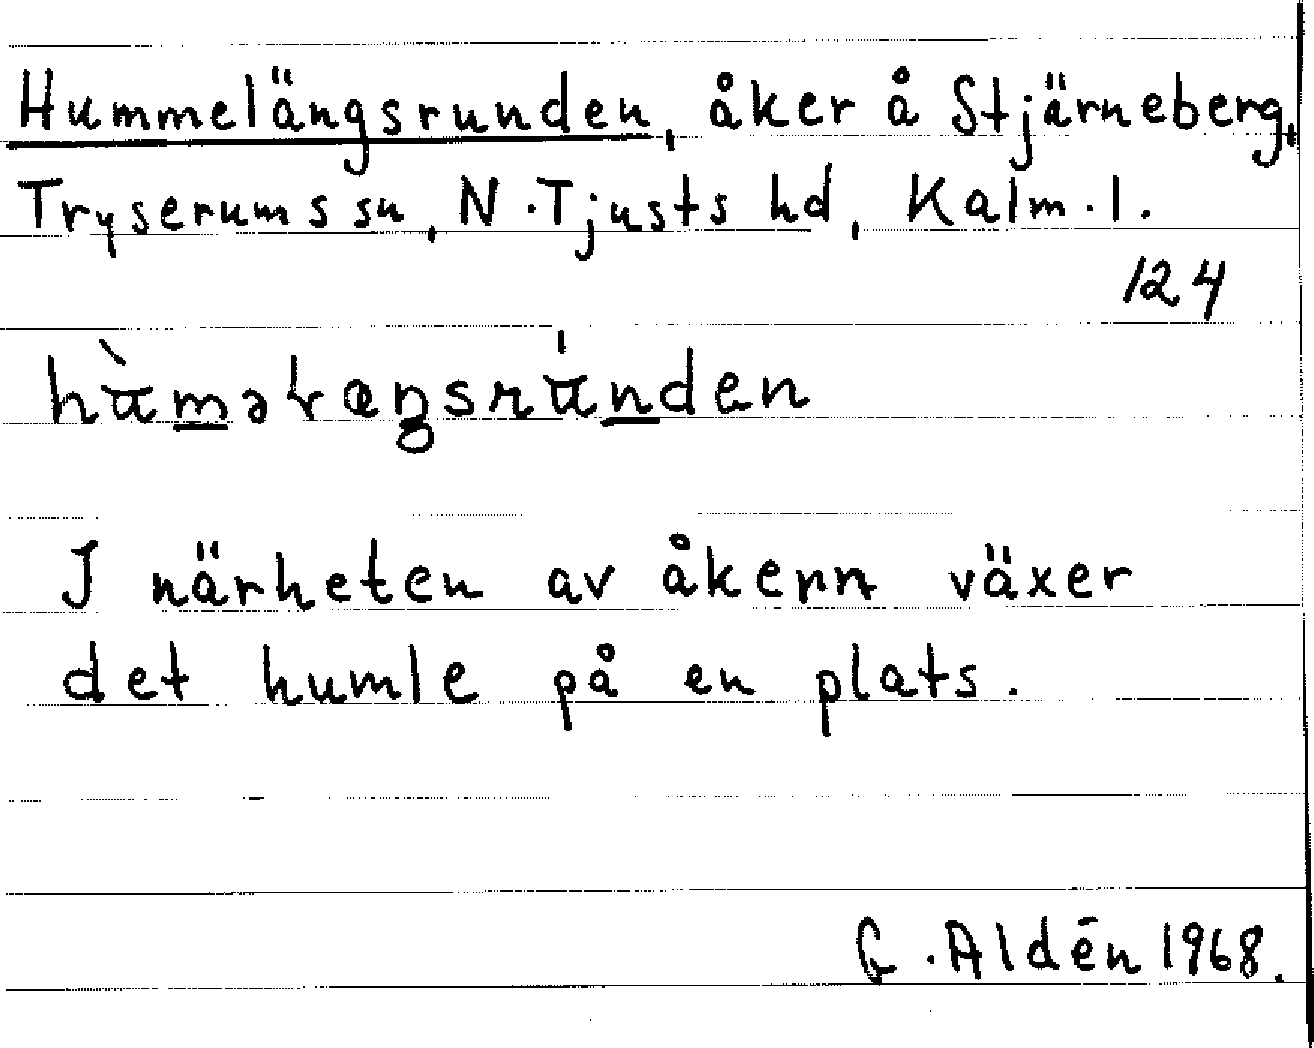 Hummelängsrunden, åker å Stjärneberg,
Tryserums sn, N. Tjusts hd, Kalm. l.
124
I närheten av åkern växer
det humle på en plats.
G. Aldén 1968.